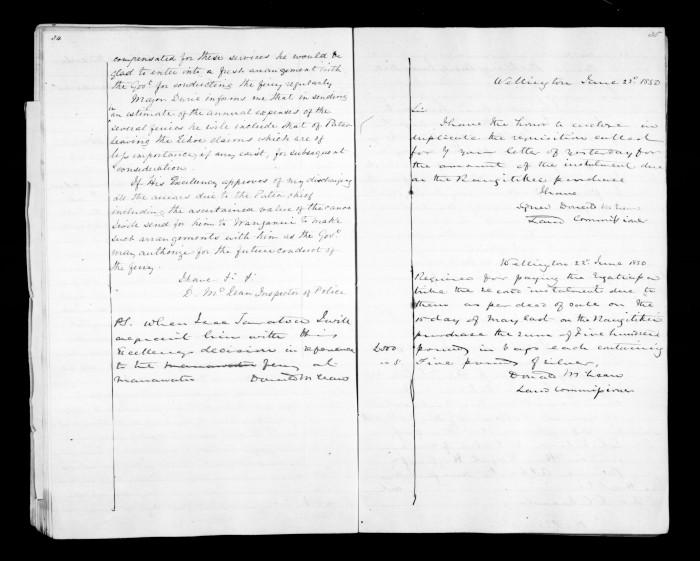 34
compensated for these services he would be
glad to enter into a fresh arrangement with
the Govt for conducting the ferry regularly
Major Durie informs me that in sending
in
an estimate of the annual expenses of the
several ferries he will include that of Patea
leaving the other claims which are of
less importance, if any exist, for subsequent
consideration.
If His Excellency approves of my discharging
all the arrears due to the Patea chief
including the ascertained value of the canoe
I will send for him to Wanganui to make
such arrangements with him as the Govt
may authorize for the future conduct of
the ferry.
I have &c &c
D. McLean Inspector of Police
PS. When I see I will
acquaint him with His
Excellency's decision in reference
to the manawatu ferry at
manawatu Donald McLean
35
Wellington June 22d 1850
Sir
I have the honor to enclose in
duplicate the requisition called
for by your letter of yesterday for
the amount of the instalment due
on the Rangitikei purchase
I have
Signed Donald McLean
Land Commissioner
Wellington 22d June 1850
Required for paying the Ngatiapa
tribe the second instalment due to
them as per deed of sale on the
15 day of May last on the Rangitikei
purchase the sum of Five hundred
£500 pounds in bags each containing
Five pounds of silver.
Donald McLean
Land Commissioner